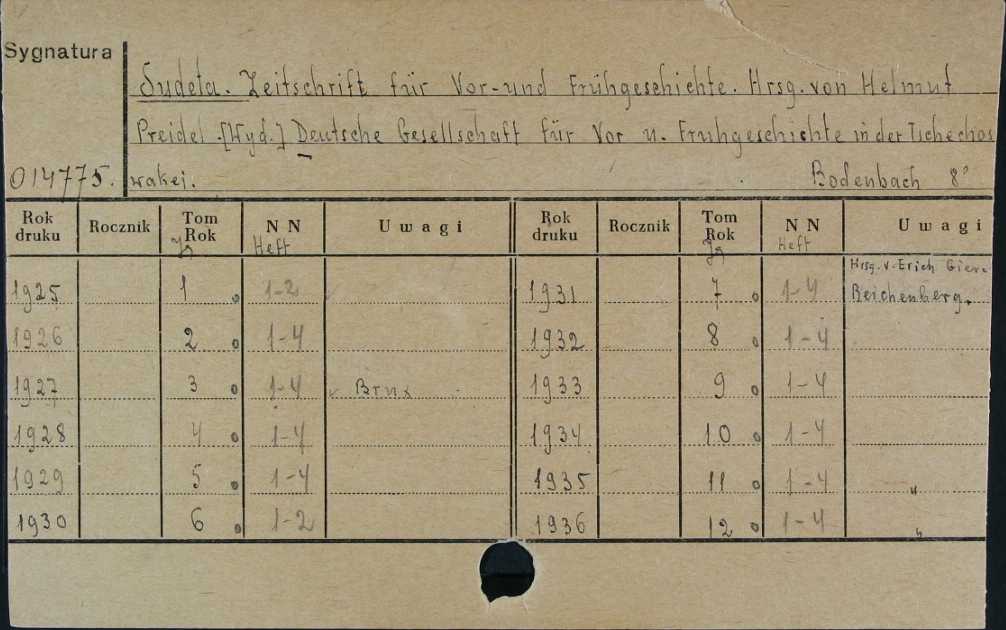 Sygnatura
Sudeta. Zeitschrift für Vor- und Frühgeschichte. Hrsg. von Helmut
Preidel. [Wyd.] Deutsche Gesellschaft für Vor u. Frühgeschichte in der Tschechos
014775. wakei. Bodenbach 8°
Rok druku Rocznik Tom Rok Jg N N Heft Uwagi Rok druku Rocznik Tom Rok Jg N N Heft Uwagi
Hrsg. v. Erich Gier
1925 1 1-2 1931 7 1-4 Reichenberg.
1926 2 1-4 1932 8 1-4
1927 3 1-4 Brux 1933 9 1-4
1928 4 1-4 1934 10 1-4
1929 5 1-4 1935 11 1-4 "
1930 6 1-2 1936 12 1-4 "